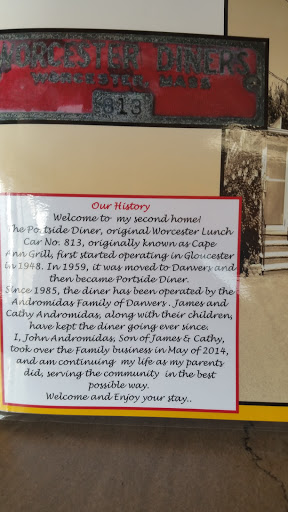 WORCESTER DINERS
WORCESTER, MASS
813
Our History
Welcome to my second home!
The Portside Diner, original Worcester Lunch
Car No. 813, originally known as Cape
Ann Grill, first started operating in Gloucester
in 1948. In 1959, it was moved to Danvers and
then became Portside Diner.
Since 1985, the diner has been operated by the
Andromidas Family of Danvers. James and
Cathy Andromidas, along with their children,
have kept the diner going ever since.
I, John Andromidas, Son of James & Cathy,
took over the Family business in May of 2014,
and am continuing my life as my parents
did, serving the community in the best
possible way.
Welcome and Enjoy your stay..